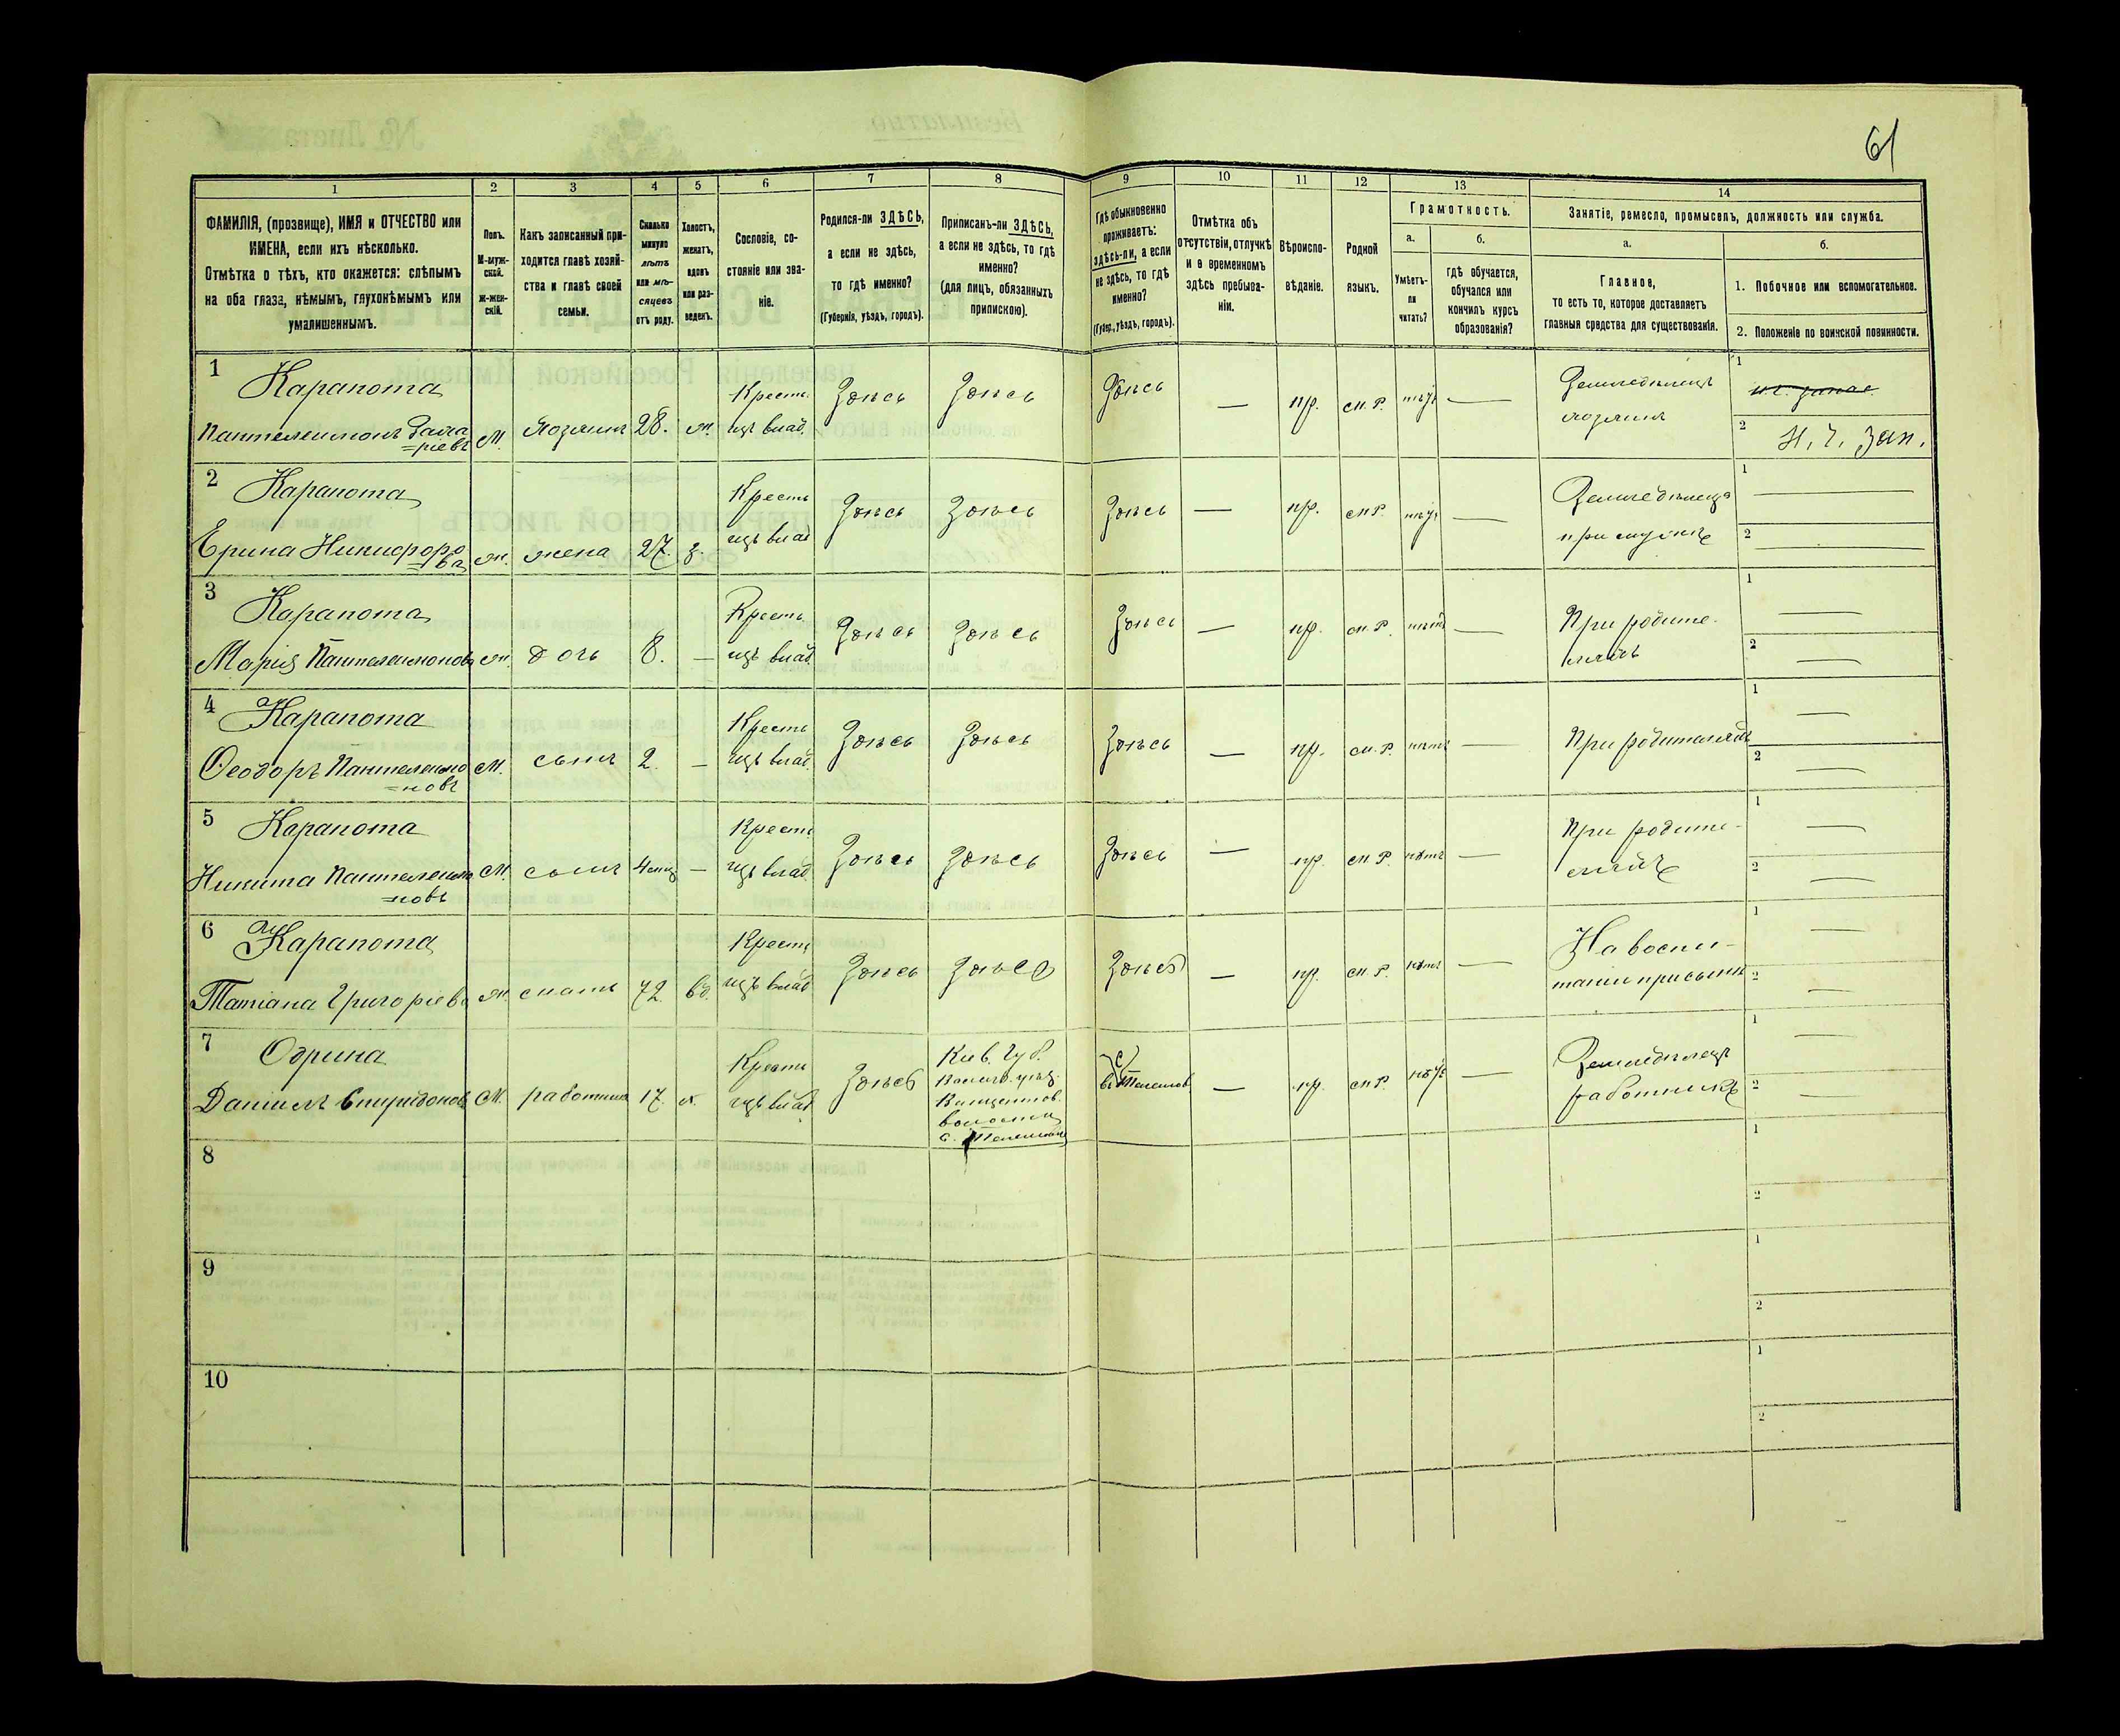 61
1 2 3 4 5 6 7 8 9 10 11 12 13 14
ФАМИЛІЯ, (прозвище), ИМЯ и ОТЧЕСТВО или
ИМЕНА, если ихъ нѣсколько.
Отмѣтка о тѣхъ, кто окажется: слѣпымъ
на оба глаза, нѣмымъ, глухонѣмымъ или
умалишеннымъ.
Полъ.
М-муж-
ской.
Ж-жен-
скій.
Какъ записанный при-
ходится главѣ хозяй-
ства и главѣ своей
семьи.
Сколько
минуло
лѣтъ
или мѣ-
сяцевъ
отъ роду.
Холостъ,
женатъ,
вдовъ
или раз-
веденъ.
Сословіе, со-
стояніе или зва-
ніе.
Родился-ли ЗДѢСЬ,
а если не здѣсь,
то гдѣ именно?
(Губернія, уѣздъ, городъ).
Приписанъ-ли ЗДѢСЬ,
а если не здѣсь, то гдѣ
именно?
(для лицъ, обязанныхъ
припискою).
Гдѣ обыкновенно
проживаетъ:
здѣсь-ли, а если
не здѣсь, то гдѣ
именно?
(Губер., уѣздъ, городъ).
Отмѣтка объ
отсутствіи, отлучкѣ
и о временномъ
здѣсь пребыва-
ніи.
Вѣроиспо-
вѣданіе.
Родной
языкъ.
Грамотность.
а.
Умѣетъ-
ли
читать?
б.
гдѣ обучается,
обучался или
кончилъ курсъ
образованія?
Занятіе, ремесло, промыселъ, должность или служба.
а.
Главное,
то есть то, которое доставляетъ
главныя средства для существованія.
б.
1. Побочное или вспомогательное.
2. Положеніе по воинской повинности.
1 Карапота
Пантелеимонъ Заха
=ріевъ
М. хозяинъ 28. ж.
Кресть.
изъ влад.
Здѣсь Здѣсь Здѣсь — пр. м. Р. —
Земледѣлецъ
хозяинъ
1
2 Н. Ч. Зап.
2 Карапота
Ерина Никифоро
=ва
ж. жена 27. з.
Кресть
изъ влад
Здѣсь Здѣсь Здѣсь — пр. м. Р. —
Земледѣлица
при мужѣ
1 —
2 —
3 Карапота
Марія Пантелеимонов
ж. дочь 8. —
Кресть
изъ влад.
Здѣсь Здѣсь Здѣсь — пр. м. Р. нѣтъ —
При родите-
ляхъ
1 —
2 —
4 Карапота
Ѳеодоръ Пантелеимо
=новъ
М. сынъ 2. —
Кресть
изъ влад.
Здѣсь Здѣсь Здѣсь — пр. м. Р. нѣтъ —
При родителяхъ
1 —
2 —
5 Карапота
Никита Пантелеимо
=новъ
М. сынъ 4 мѣц —
Кресть
изъ влад.
Здѣсь Здѣсь Здѣсь — пр. м. Р. нѣтъ —
При родите-
ляхъ
1 —
2 —
6 Карапота
Татіана Григоріева
ж. мать 72. вд.
Кресть
изъ влад
Здѣсь Здѣсь Здѣсь — пр. м. Р. нѣтъ —
На воспи-
таніи при сынѣ
1 —
2 —
7 Одрина
Даніилъ Спиридонов
М. работникъ 17. х.
Кресть
изъ влад
Здѣсь
Кіев. Губ.
волости
с.
— пр. м. Р. —
Земледѣлецъ
работникъ
1 —
2 —
8
1
2
9
1
2
10
1
2